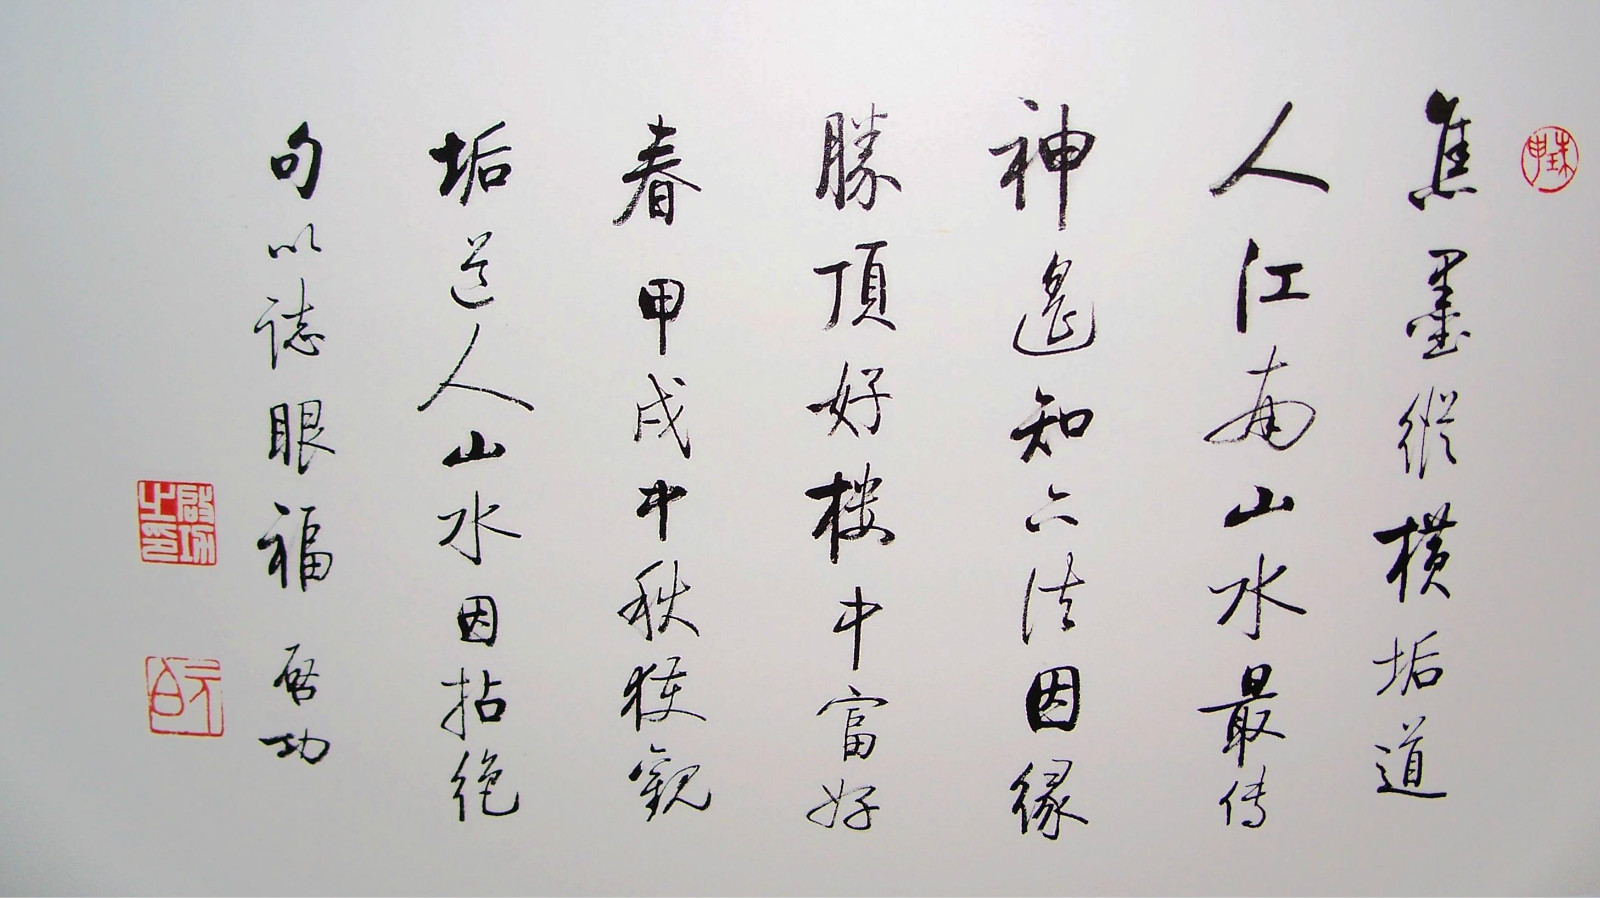 焦墨縱橫垢道
人江南山水最传
神遙知六法因緣
勝頂好楼中富好
春甲戌中秋获觀
垢道人山水因拈绝
句以誌眼福 启功
啟功之印